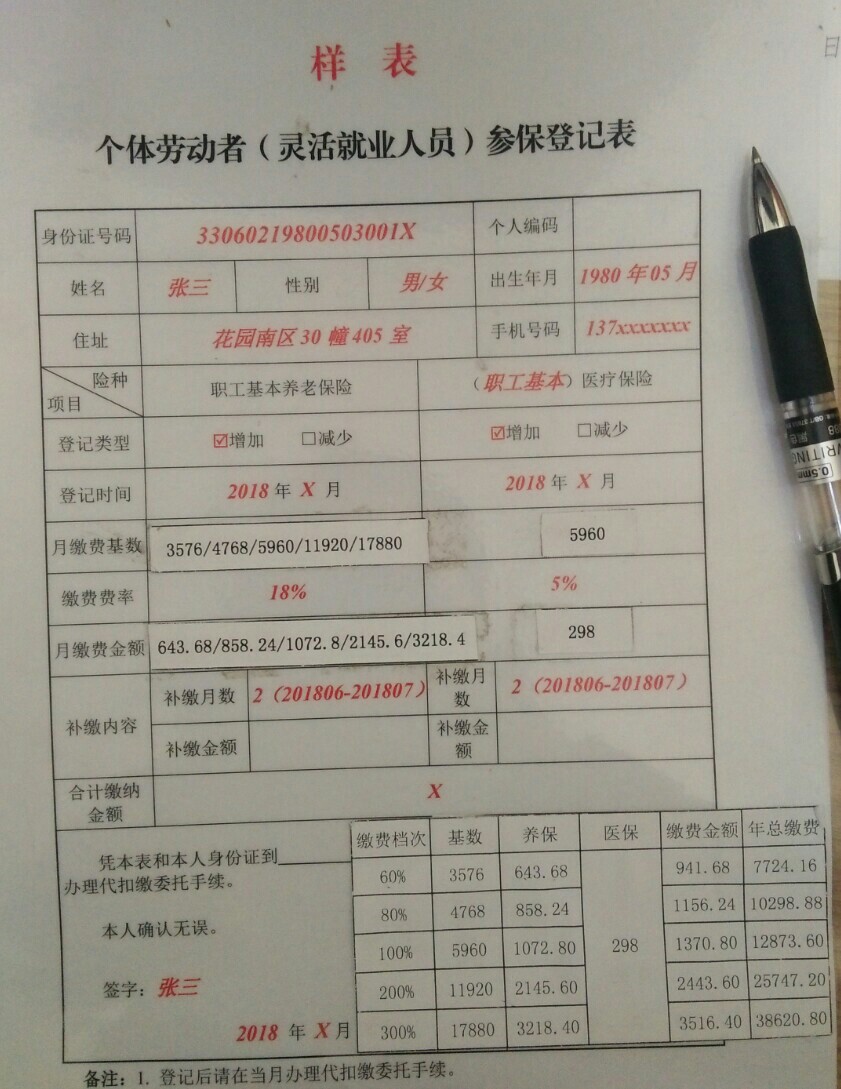 样 表
日
个体劳动者（灵活就业人员）参保登记表
身份证号码 33060219800503001X 个人编码
姓名 张三 性别 男/女 出生年月 1980 年 05 月
住址 花园南区 30 幢 405 室 手机号码 137xxxxxxxx
险种
项目 职工基本养老保险 （职工基本）医疗保险
登记类型 ☑增加 □减少 ☑增加 □减少
登记时间 2018 年 X 月 2018 年 X 月
月缴费基数 3576/4768/5960/11920/17880 5960
缴费费率 18% 5%
月缴费金额 643.68/858.24/1072.8/2145.6/3218.4 298
补缴内容 补缴月数 2（201806-201807） 补缴月数 2（201806-201807）
补缴金额 补缴金额
合计缴纳金额 X
凭本表和本人身份证到______
办理代扣缴委托手续。
本人确认无误。
签字：张三
2018 年 X 月
缴费档次 基数 养保 医保 缴费金额 年总缴费
60% 3576 643.68 298 941.68 7724.16
80% 4768 858.24 1156.24 10298.88
100% 5960 1072.80 1370.80 12873.60
200% 11920 2145.60 2443.60 25747.20
300% 17880 3218.40 3516.40 38620.80
备注：1. 登记后请在当月办理代扣缴委托手续。
WRITING
0.5mm